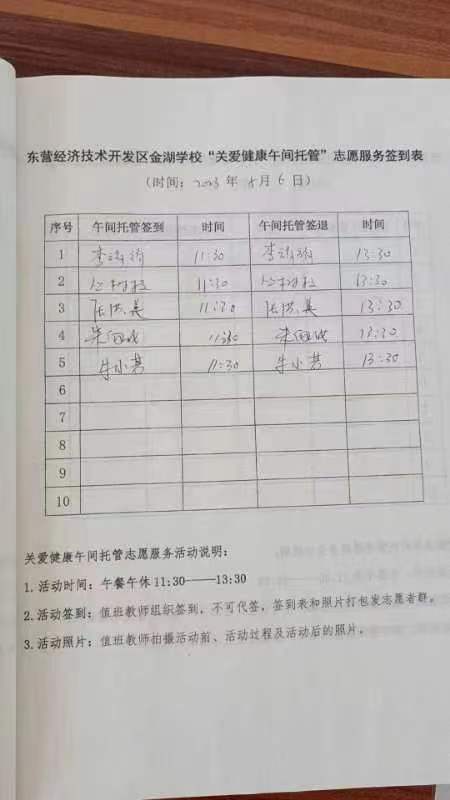 东营经济技术开发区金湖学校“关爱健康午间托管”志愿服务签到表
(时间: 2023 年 月 6 日)
序号 午间托管签到 时间 午间托管签退 时间
1 11:30 13:30
2 11:30 13:30
3 11:30 13:30
4 11:30 13:30
5 11:30 13:30
6
7
8
9
10
关爱健康午间托管志愿服务活动说明:
1.活动时间: 午餐午休 11:30——13:30
2.活动签到: 值班教师组织签到, 不可代签, 签到表和照片打包发志愿者群。
3.活动照片: 值班教师拍摄活动前、活动过程及活动后的照片。